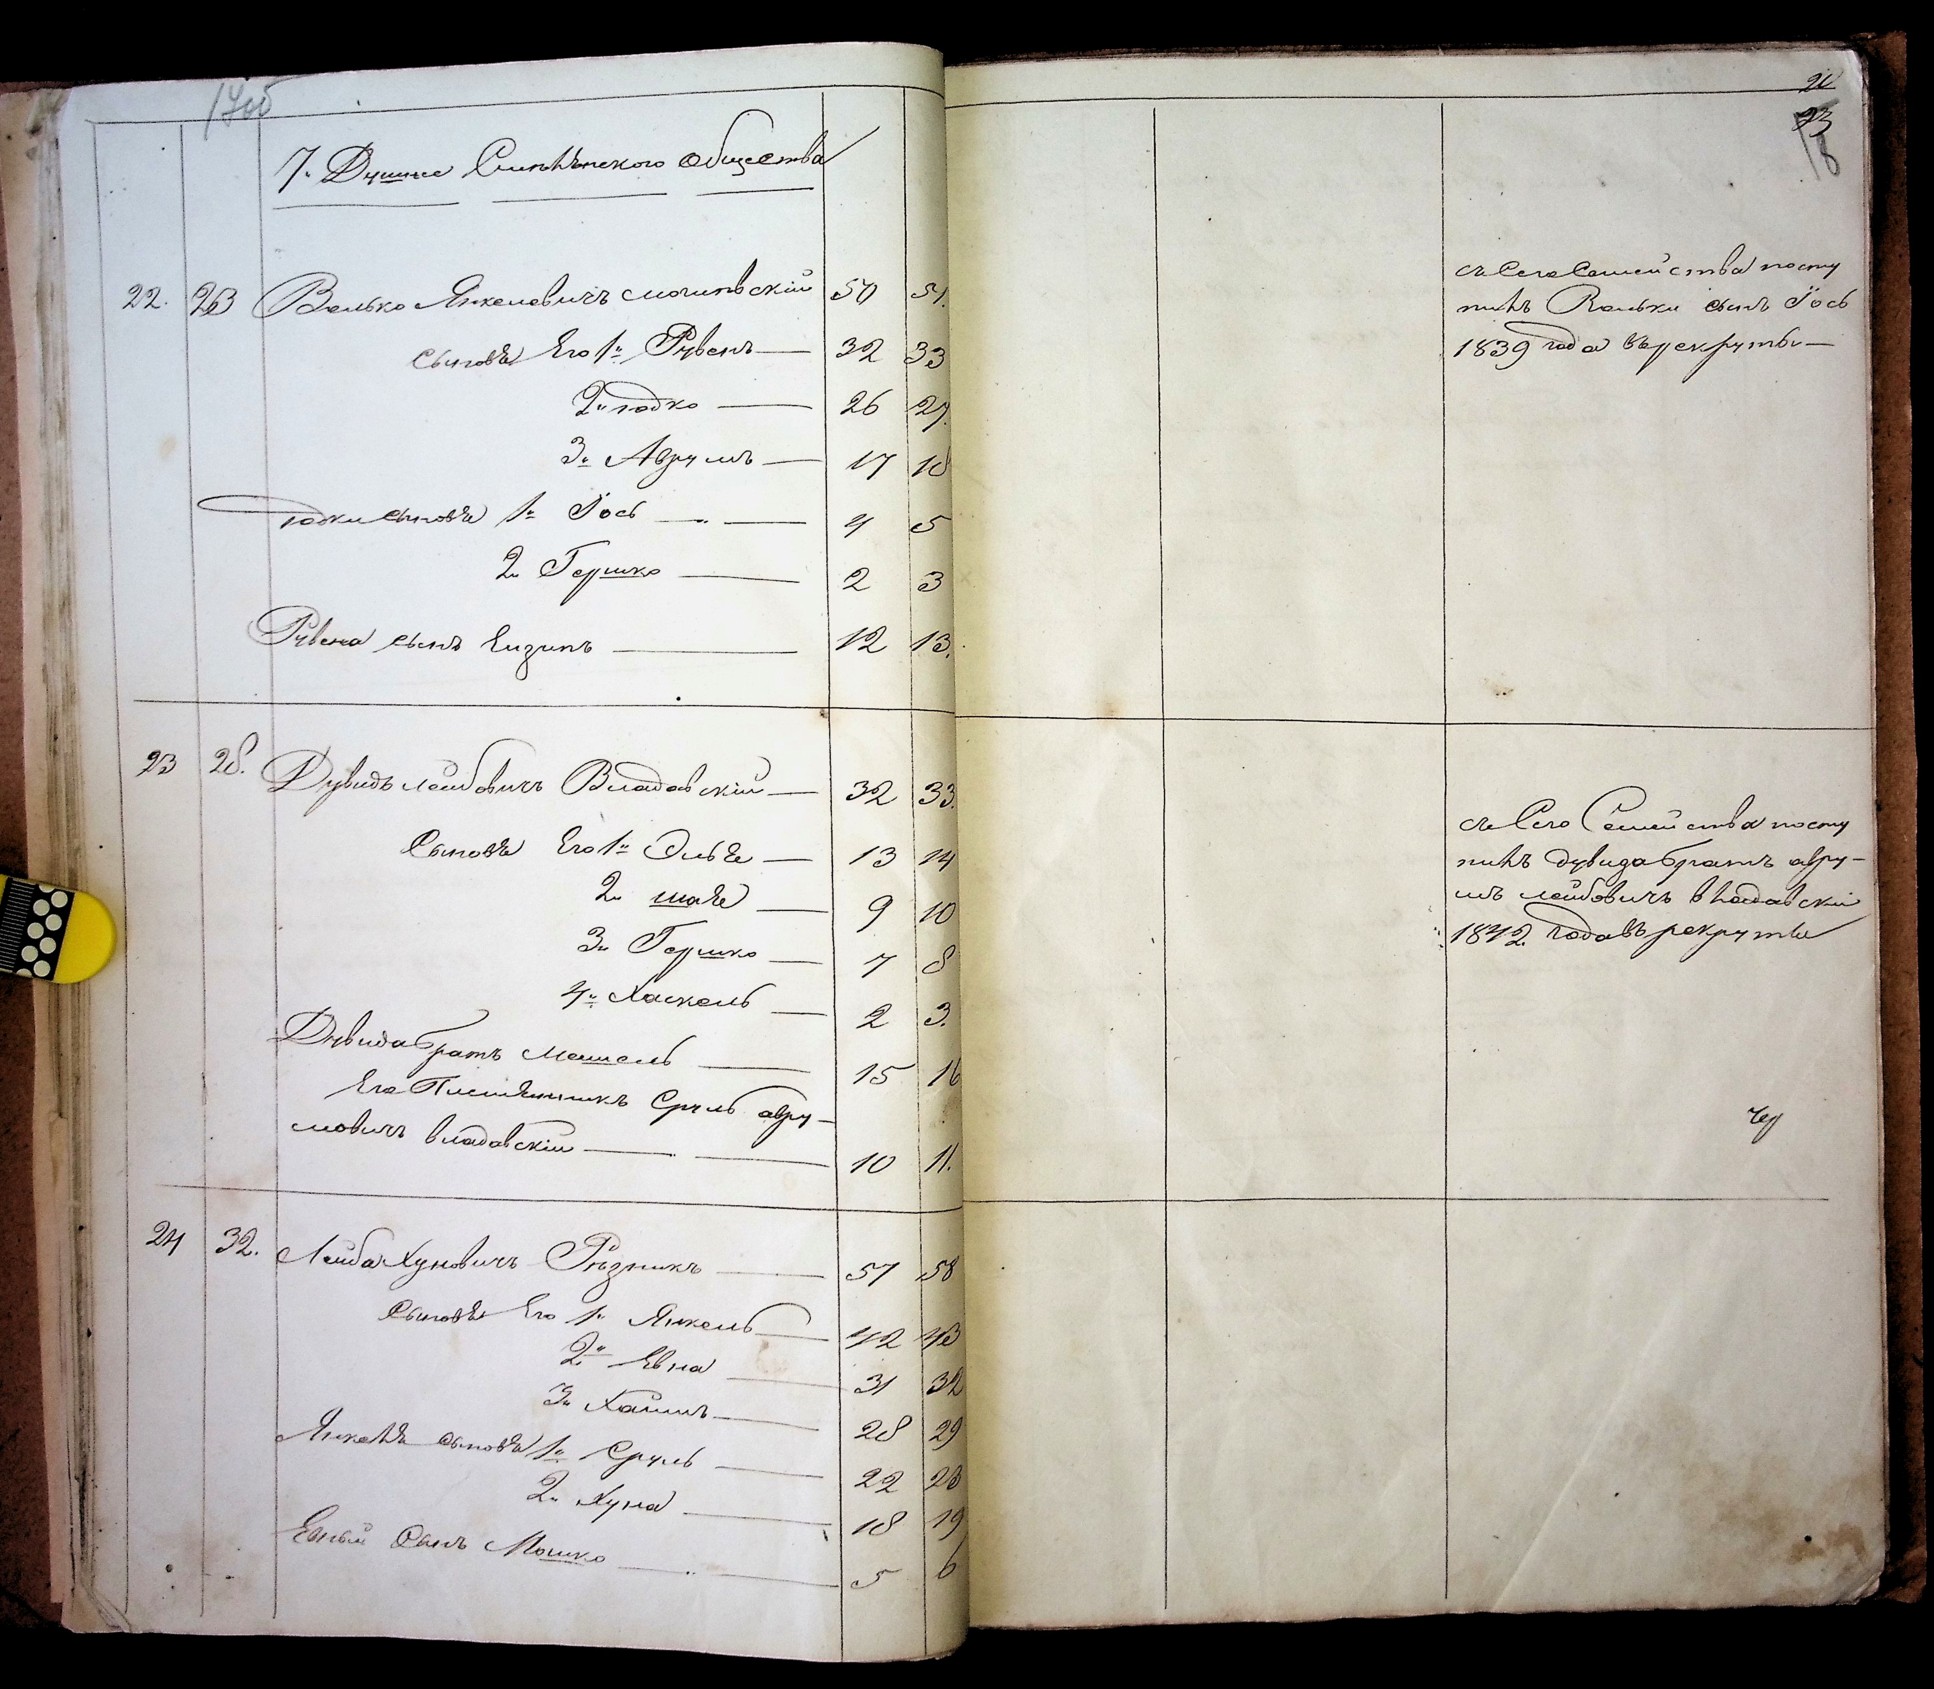 17об
7. Душные общества
22. 23 Волько Янкелевичъ Могилевскій 50 51.
сыновья Его 1й Рувенъ 32 33
2й Юдко 26 27.
3й Аврумъ 17 18
Юдки сыновья 1й Іось 4 5
2й Гершко 2 3
Рувена сынъ 12 13.
23 28. Дувидъ Лейбовичъ Владавскій 32 33.
Сыновья Его 1й Эльья 13 14
2й Шая 9 10
3й Гершко 7 8
4й Хаскель 2 3.
Дувида братъ Мошель 15 16
Его Племянникъ Сруль Авру-
мовичъ Владавскій 10 11.
24 32. Лейба Хуновичъ Рѣзникъ 57 58
Сыновья Его 1й Янкель 42 43
2й Евна 31 32
3й Хаимъ 28 29
Янкеля сыновья 1й Сруль 22 23
2й Хуна 18 19
Евны Сынъ Мошко 5 6
18
съ Сего Семейства посту
пилъ Вольки сынъ Іось
1839 года въ рекруты
съ Сего Семейства посту
пилъ Дувида братъ Авру-
мъ Лейбовичъ Владавскій
1842 года въ рекруты